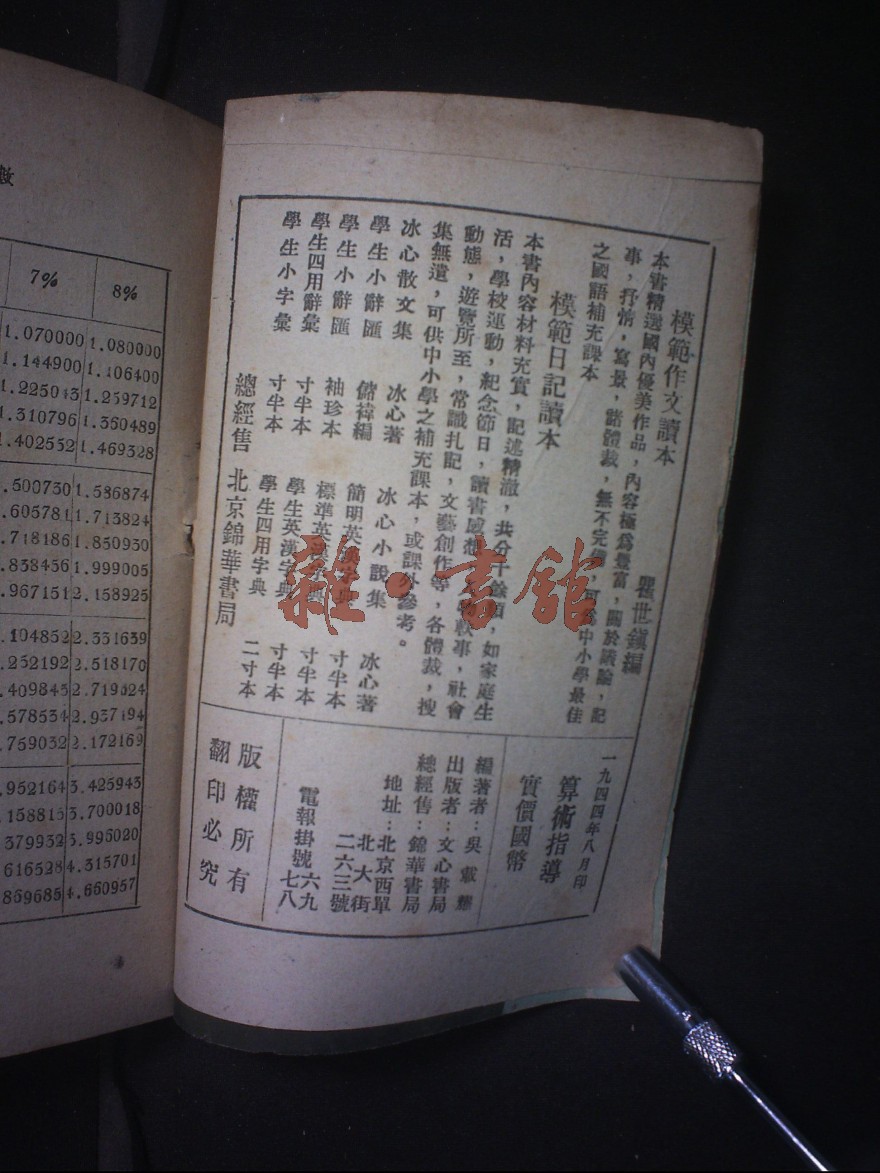 數
7% 8%
1.070000 1.080000
1.144900 1.166400
1.225043 1.259712
1.310796 1.360489
1.402552 1.469328
.500730 1.586874
.605781 1.713824
.718186 1.850930
.838456 1.999005
.967151 2.158925
.104852 2.331639
.252192 2.518170
.409845 2.719624
.578534 2.937194
.759032 2.172169
.952164 3.425943
.158815 3.700018
.379932 3.996020
616528 4.315701
869685 4.660957
模範作文讀本 瞿世鎮編
本書精選國內優美作品，內容極為豐富，關於議論，記
事，抒情，寫景，諸體裁，無不完備，可為中小學最佳
之國語補充課本
模範日記讀本
本書內容材料充實，記述精澈，共分十餘項，如家庭生
活，學校運動，紀念節日，讀書感想，軼事，社會
動態，遊覽所至，常識扎記，文藝創作等，各體裁，搜
集無遺，可供中小學之補充課本，或課外參考。
冰心散文集 冰心著 冰心小說集 冰心著
學生小辭匯 儲禕編 簡明英漢字典 寸半本
學生小辭匯 袖珍本 標準英漢字典 寸半本
學生四用辭彙 寸半本 學生英漢字典 寸半本
學生小字彙 寸半本 學生四用字典 二寸本
總經售 北京錦華書局
一九四四年八月印
算術指導
實價國幣
編著者：吳
出版者：文心書局
總經售：錦華書局
地址：北京西單
北大街
二六三號
電報掛號六九
七八
版權所有
翻印必究
雜·書館